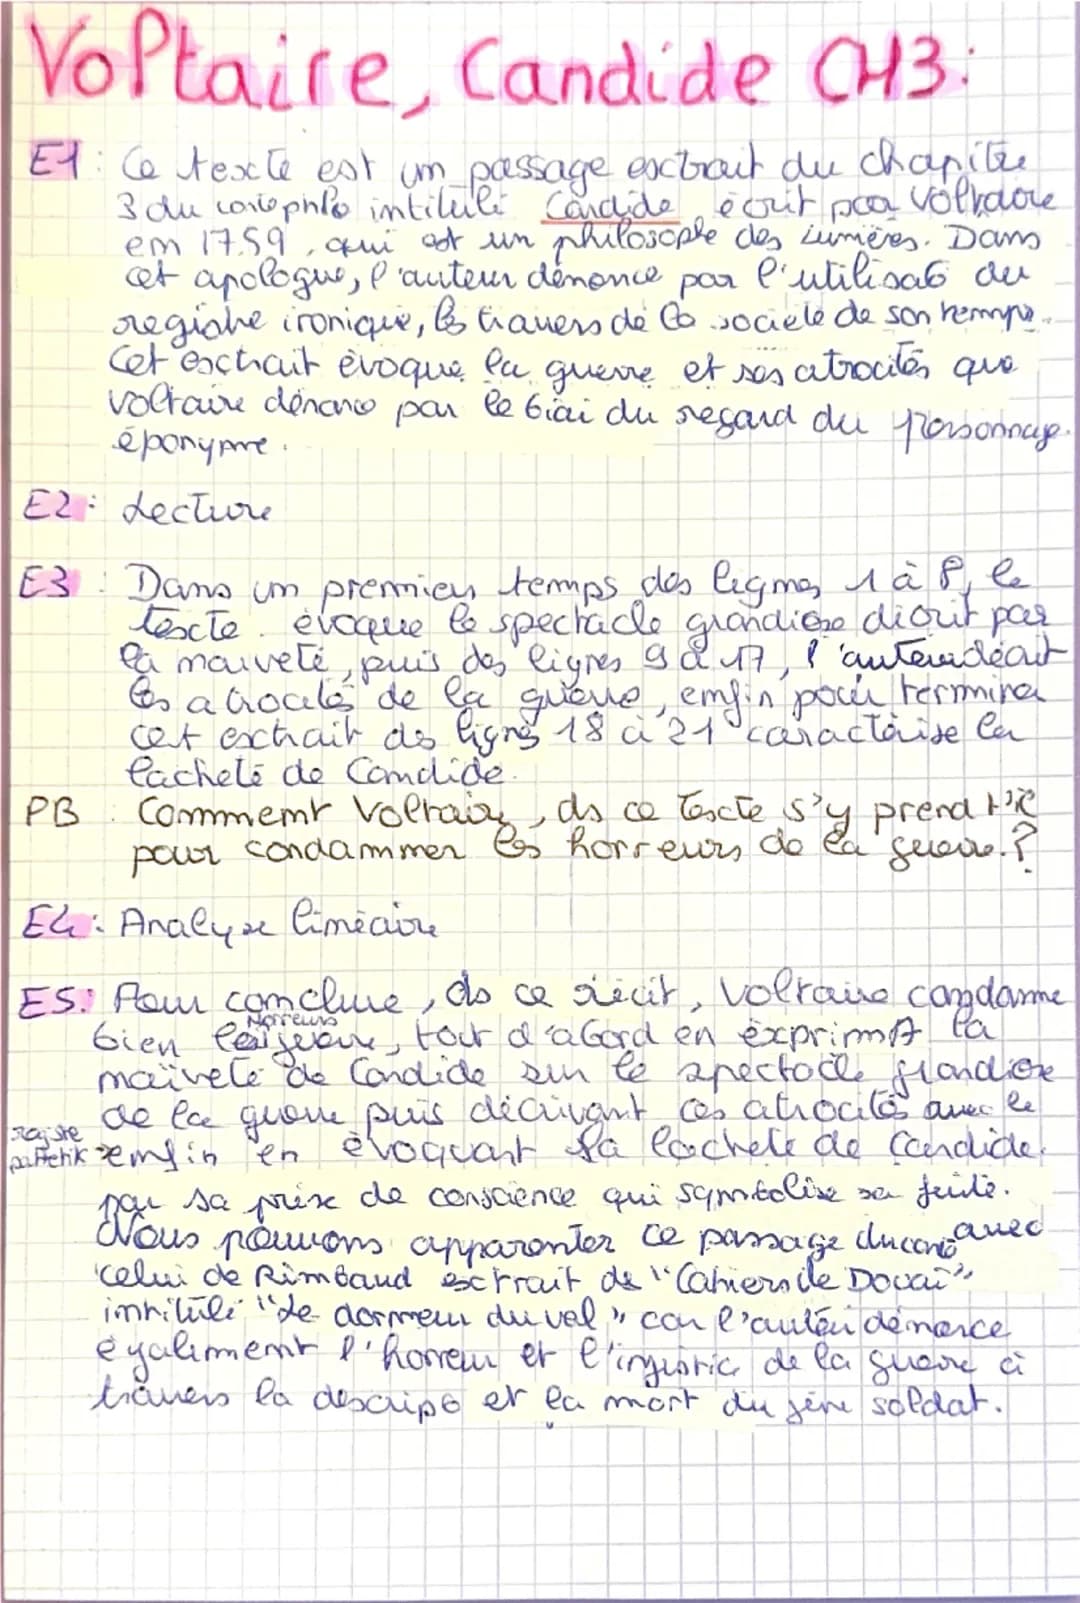 Voltaire, Candide CH3:
E1: Ce texte est un passage extrait du chapitre
3 du conte philo intitulé Candide, écrit par Voltaire
em 1759, qui est un philosophe des Lumières. Dans
cet apologue, l'auteur dénonce par l'utilisat° du
registre ironique, les travers de la société de son temps.
Cet extrait évoque la guerre et ses atrocités que
Voltaire dénonce par le biai du regard du personnage
éponyme.
E2: Lecture
E3: Dans un premier temps des lignes 1 à 8, le
texte évoque le spectacle grandiose décrit par
la naiveté, puis des lignes 9 à 17, l'auteur décrit
les atrocités de la guerre, enfin pour terminer
cet extrait des lignes 18 à 21 caractérise la
lacheté de Candide.
PB: Comment Voltaire, ds ce texte s'y prend t'il
pour condammer les horreurs de la guerre.?
E4: Analyse linéaire
E5: Pour conclure, ds ce récit, Voltaire condamne
bien les horreurs guerre, tout d'abord en exprimant la
naïveté de Candide sur le spectacle grandiose
de la guerre puis décrivant ces atrocités avec le
registre pathétik enfin en évoquant la lacheté de Candide.
par sa prise de conscience qui symbolise sa fuite.
Nous pouvons apparenter ce passage du conte avec
celui de Rimbaud extrait de "Cahiers de Douai"
intitulé "Le dormeur du val" car l'auteur dénonce
également l'horreur et l'injustice de la guerre à
travers la descript° et la mort du jeune soldat.